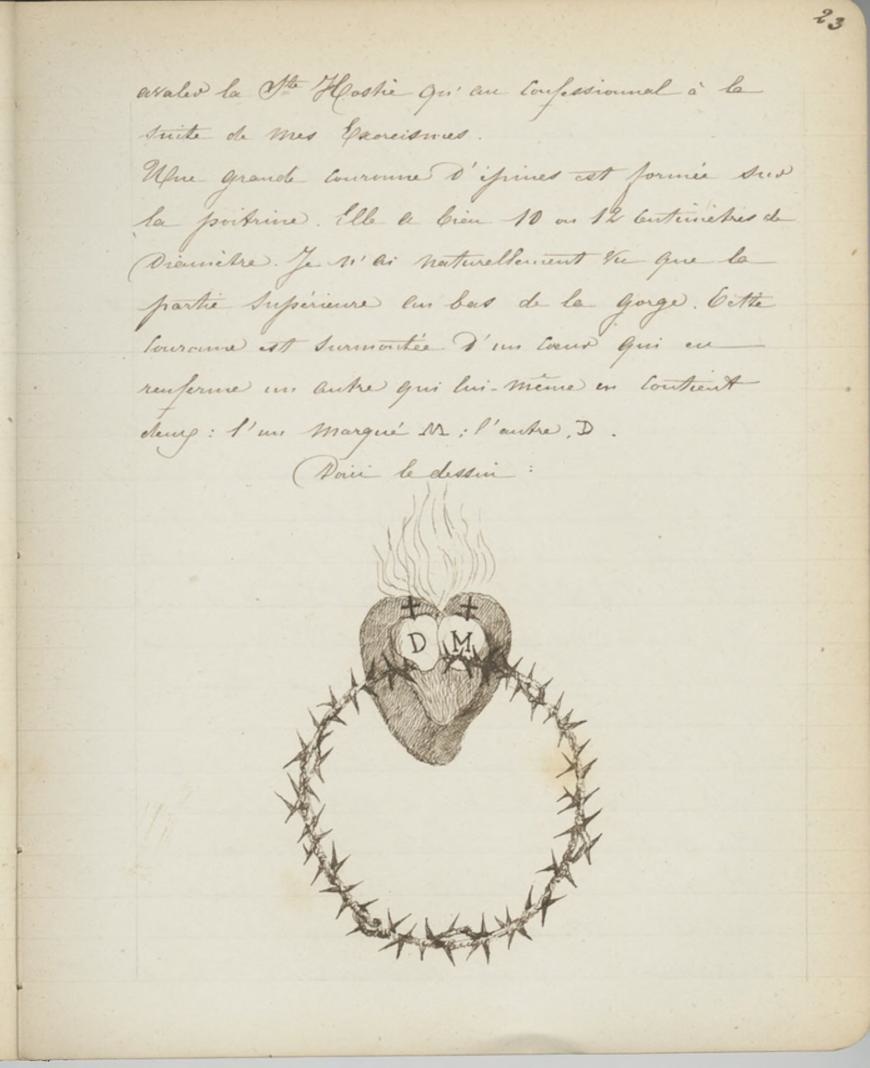 23
avaler la Ste Hostie qu'au Confessionnal à la
suite de mes Exorcismes.
Une grande couronne d'épines est formée sur
la poitrine. Elle a bien 10 ou 12 Centimètres de
Diamètre. Je n'ai naturellement vu que la
partie supérieure au bas de la gorge. Cette
couronne est surmontée d'un cœur qui en
renferme un autre qui lui-même en contient
deux : l'un marqué M ; l'autre, D.
Voici le dessin :
D M